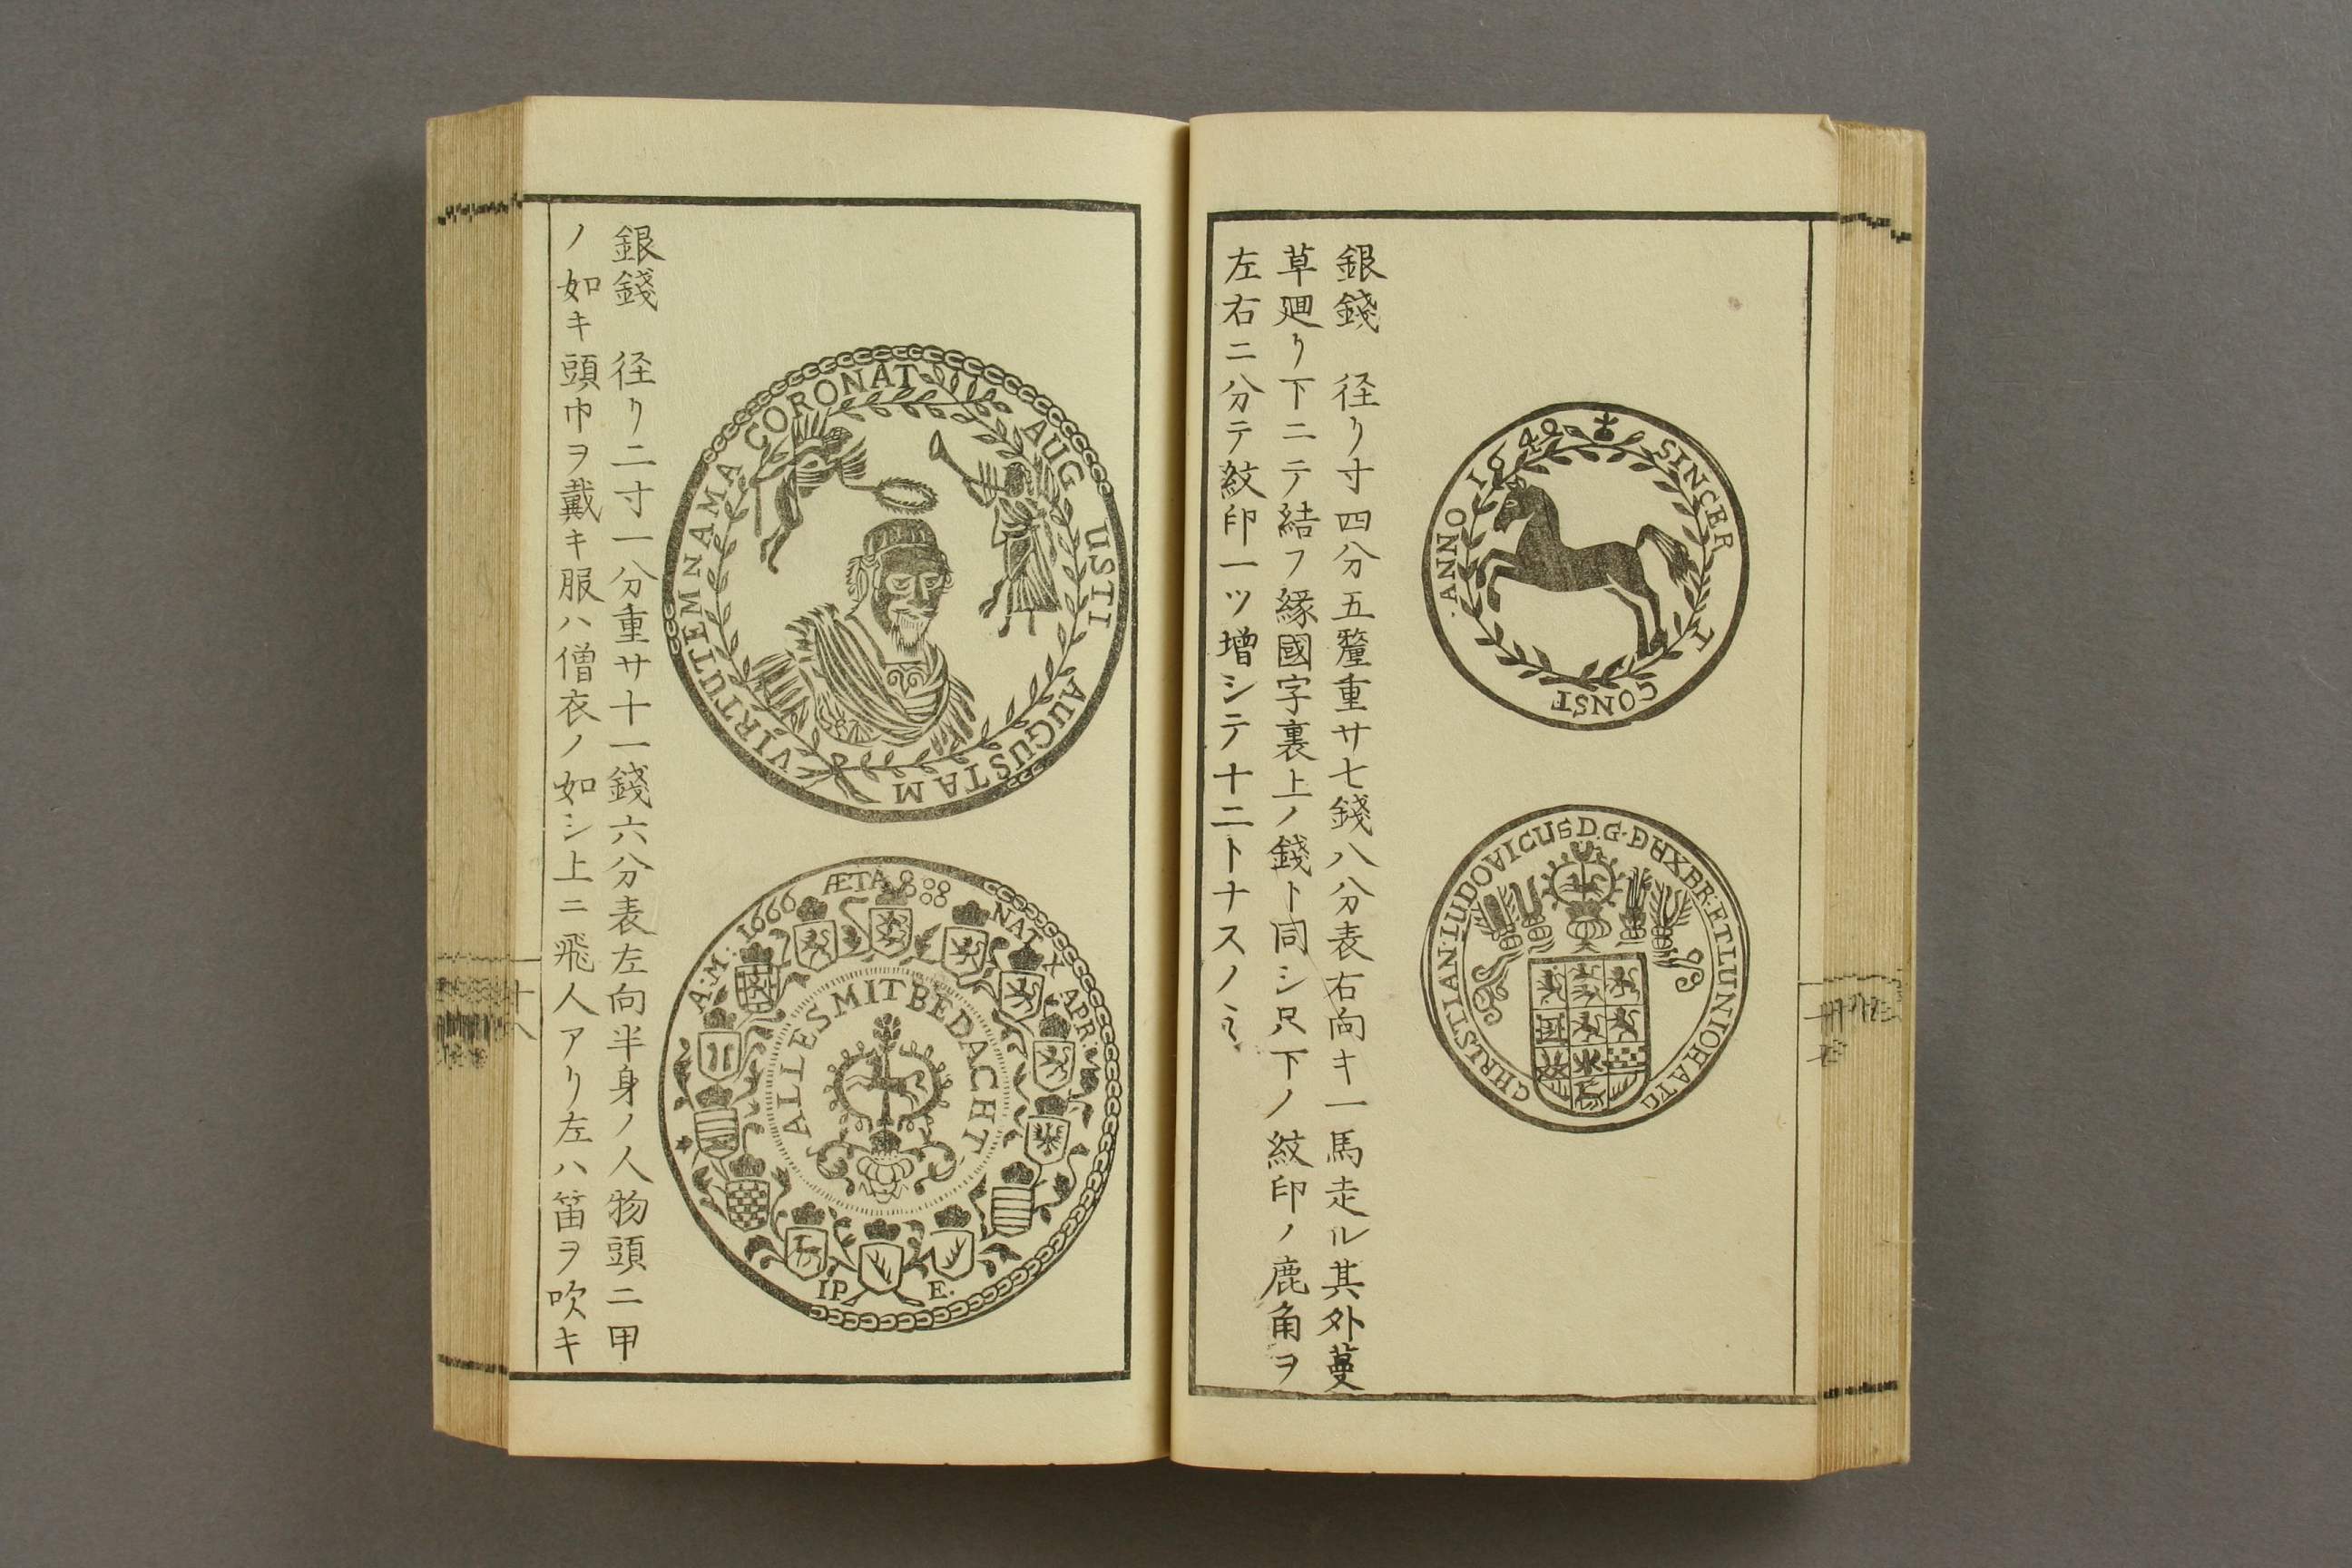 ANNO 1642 SINCER T CONST
CHRISTIAN·LUDOVICUS D.G·DUX BR·ET LUN
銀錢　径リ寸四分五釐重サ七錢八分表右向キ一馬走ル其外蔓
草廻リ下ニテ結フ縁國字裏上ノ錢ト同シ只下ノ紋印ノ鹿角ヲ
左右ニ分テ紋印一ツ増シテ十二トナスノミ
VIRTUTEM NAMA CORONAT AUG USTI AUGUSTAM
A:M: 1666 ÆTA 8888 NAT X APR:
ALLES MIT BEDACHT
IP E.
銀錢　径リ二寸一分重サ十一錢六分表左向半身ノ人物頭ニ甲
ノ如キ頭巾ヲ戴キ服ハ僧衣ノ如シ上ニ飛人アリ左ハ笛ヲ吹キ
十八